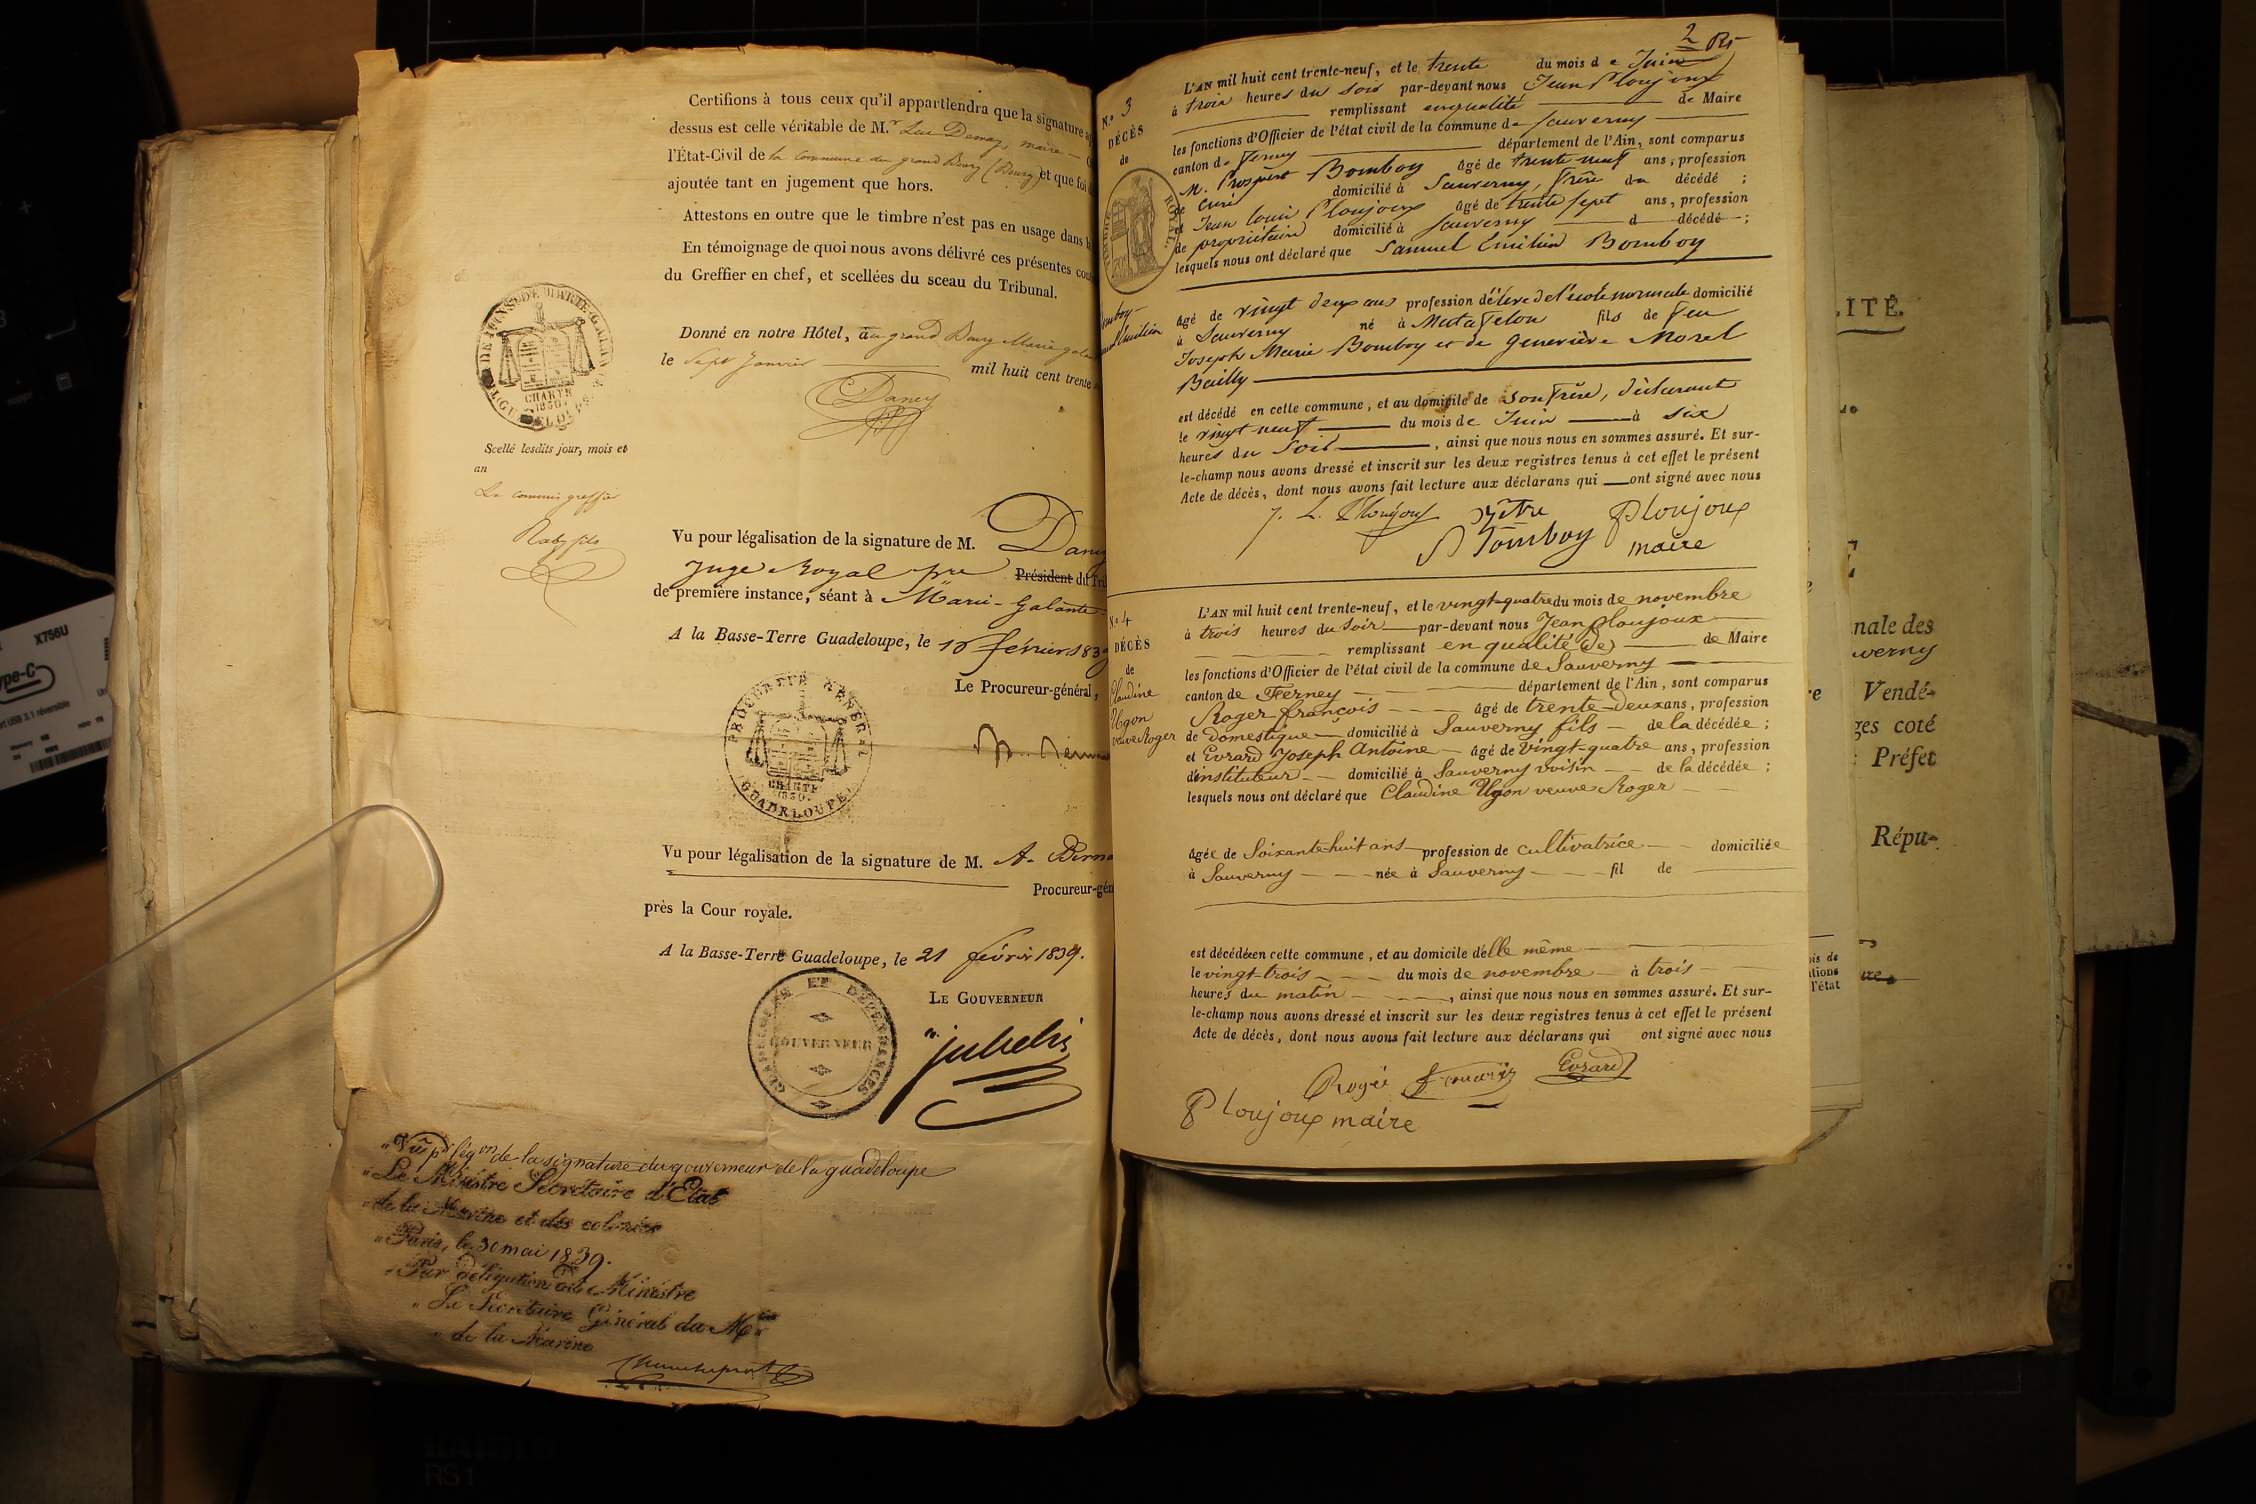 Certifions à tous ceux qu'il appartiendra que la signature
dessus est celle véritable de M.r Luc Demay, maire
l'État-Civil de la commune du grand Bourg (Bourg) et que foi
ajoutée tant en jugement que hors.
Attestons en outre que le timbre n'est pas en usage dans
En témoignage de quoi nous avons délivré ces présentes
du Greffier en chef, et scellées du sceau du Tribunal.
Donné en notre Hôtel, au grand Bourg Marie galante
le Sept Janvier mil huit cent trente
Dancy
CHARTE
1830.
Scellé lesdits jour, mois et
an
Le commis greffier
Raby fils
Vu pour légalisation de la signature de M. Dancy
Juge Royal Président du Tri
de première instance, séant à Marie-Galante
A la Basse-Terre Guadeloupe, le 10 février 1839
Le Procureur-général,
PROCUREUR GENERAL
CHARTE
1830.
GUADELOUPE
Vu pour légalisation de la signature de M. A. Berna
Procureur-gén
près la Cour royale.
A la Basse-Terre Guadeloupe, le 21 février 1839.
LE GOUVERNEUR
GUADELOUPE ET DÉPENDANCES
GOUVERNEUR
Jubelin
"Vu pr légon de la signature du gouverneur de la guadeloupe
"Le Ministre Secrétaire d'Etat
"de la Marine et des colonies
"Paris, le 30 mai 1839.
"Par délégation du Ministre
"Le Secrétaire Général du Mère
"de la Marine
2
N.o 3
DÉCÈS
de
TIMBRE ROYAL
Bomboy
Samuel Emilien
L'AN mil huit cent trente-neuf, et le trente du mois de Juin
à trois heures du soir par-devant nous Jean Ploujoux
remplissant en qualité de Maire
les fonctions d'Officier de l'état civil de la commune de Sauverny
canton de Ferney département de l'Ain, sont comparus
M. Prospert Bomboy âgé de trente neuf ans, profession
de Curé domicilié à Sauverny, frère du décédé ;
et Jean Louis Ploujoux âgé de trente sept ans, profession
de propriétaire domicilié à Sauverny d décédé ;
lesquels nous ont déclaré que Samuel Emilien Bomboy
âgé de vingt deux ans profession d'élève de l'école normale domicilié
à Sauverny né à Matafelon fils de feu
Joseph Marie Bomboy et de Geneviève Morel
Bailly
est décédé en cette commune, et au domicile de son frère, déclarant
le vingt neuf du mois de Juin à six
heures du Soir, ainsi que nous nous en sommes assuré. Et sur-
le-champ nous avons dressé et inscrit sur les deux registres tenus à cet effet le présent
Acte de décès, dont nous avons fait lecture aux déclarans qui ont signé avec nous
J. L. Ploujoux Bomboy Ploujoux
maire
No 4
DÉCÈS
de
Claudine
Ugon
veuve Roger
L'AN mil huit cent trente-neuf, et le vingt-quatre du mois de novembre
à trois heures du soir par-devant nous Jean Ploujoux
remplissant en qualité de de Maire
les fonctions d'Officier de l'état civil de la commune de Sauverny
canton de Ferney département de l'Ain, sont comparus
Roger françois âgé de trente-deux ans, profession
de domestique domicilié à Sauverny fils de la décédée ;
et Evrard Joseph Antoine âgé de vingt-quatre ans, profession
d'instituteur domicilié à Sauverny voisin de la décédée ;
lesquels nous ont déclaré que Claudine Ugon veuve Roger
âgée de Soixante-huit ans profession de cultivatrice domiciliée
à Sauverny née à Sauverny fil de
est décédée en cette commune, et au domicile d'elle même
le vingt-trois du mois de novembre à trois
heures du matin, ainsi que nous nous en sommes assuré. Et sur-
le-champ nous avons dressé et inscrit sur les deux registres tenus à cet effet le présent
Acte de décès, dont nous avons fait lecture aux déclarans qui ont signé avec nous
Evrard
Ploujoux maire
ITÉ.
nale des
uverny
Vendé-
ges coté
Préfet
Répu-
l'état
X756U
ype-C
RS1